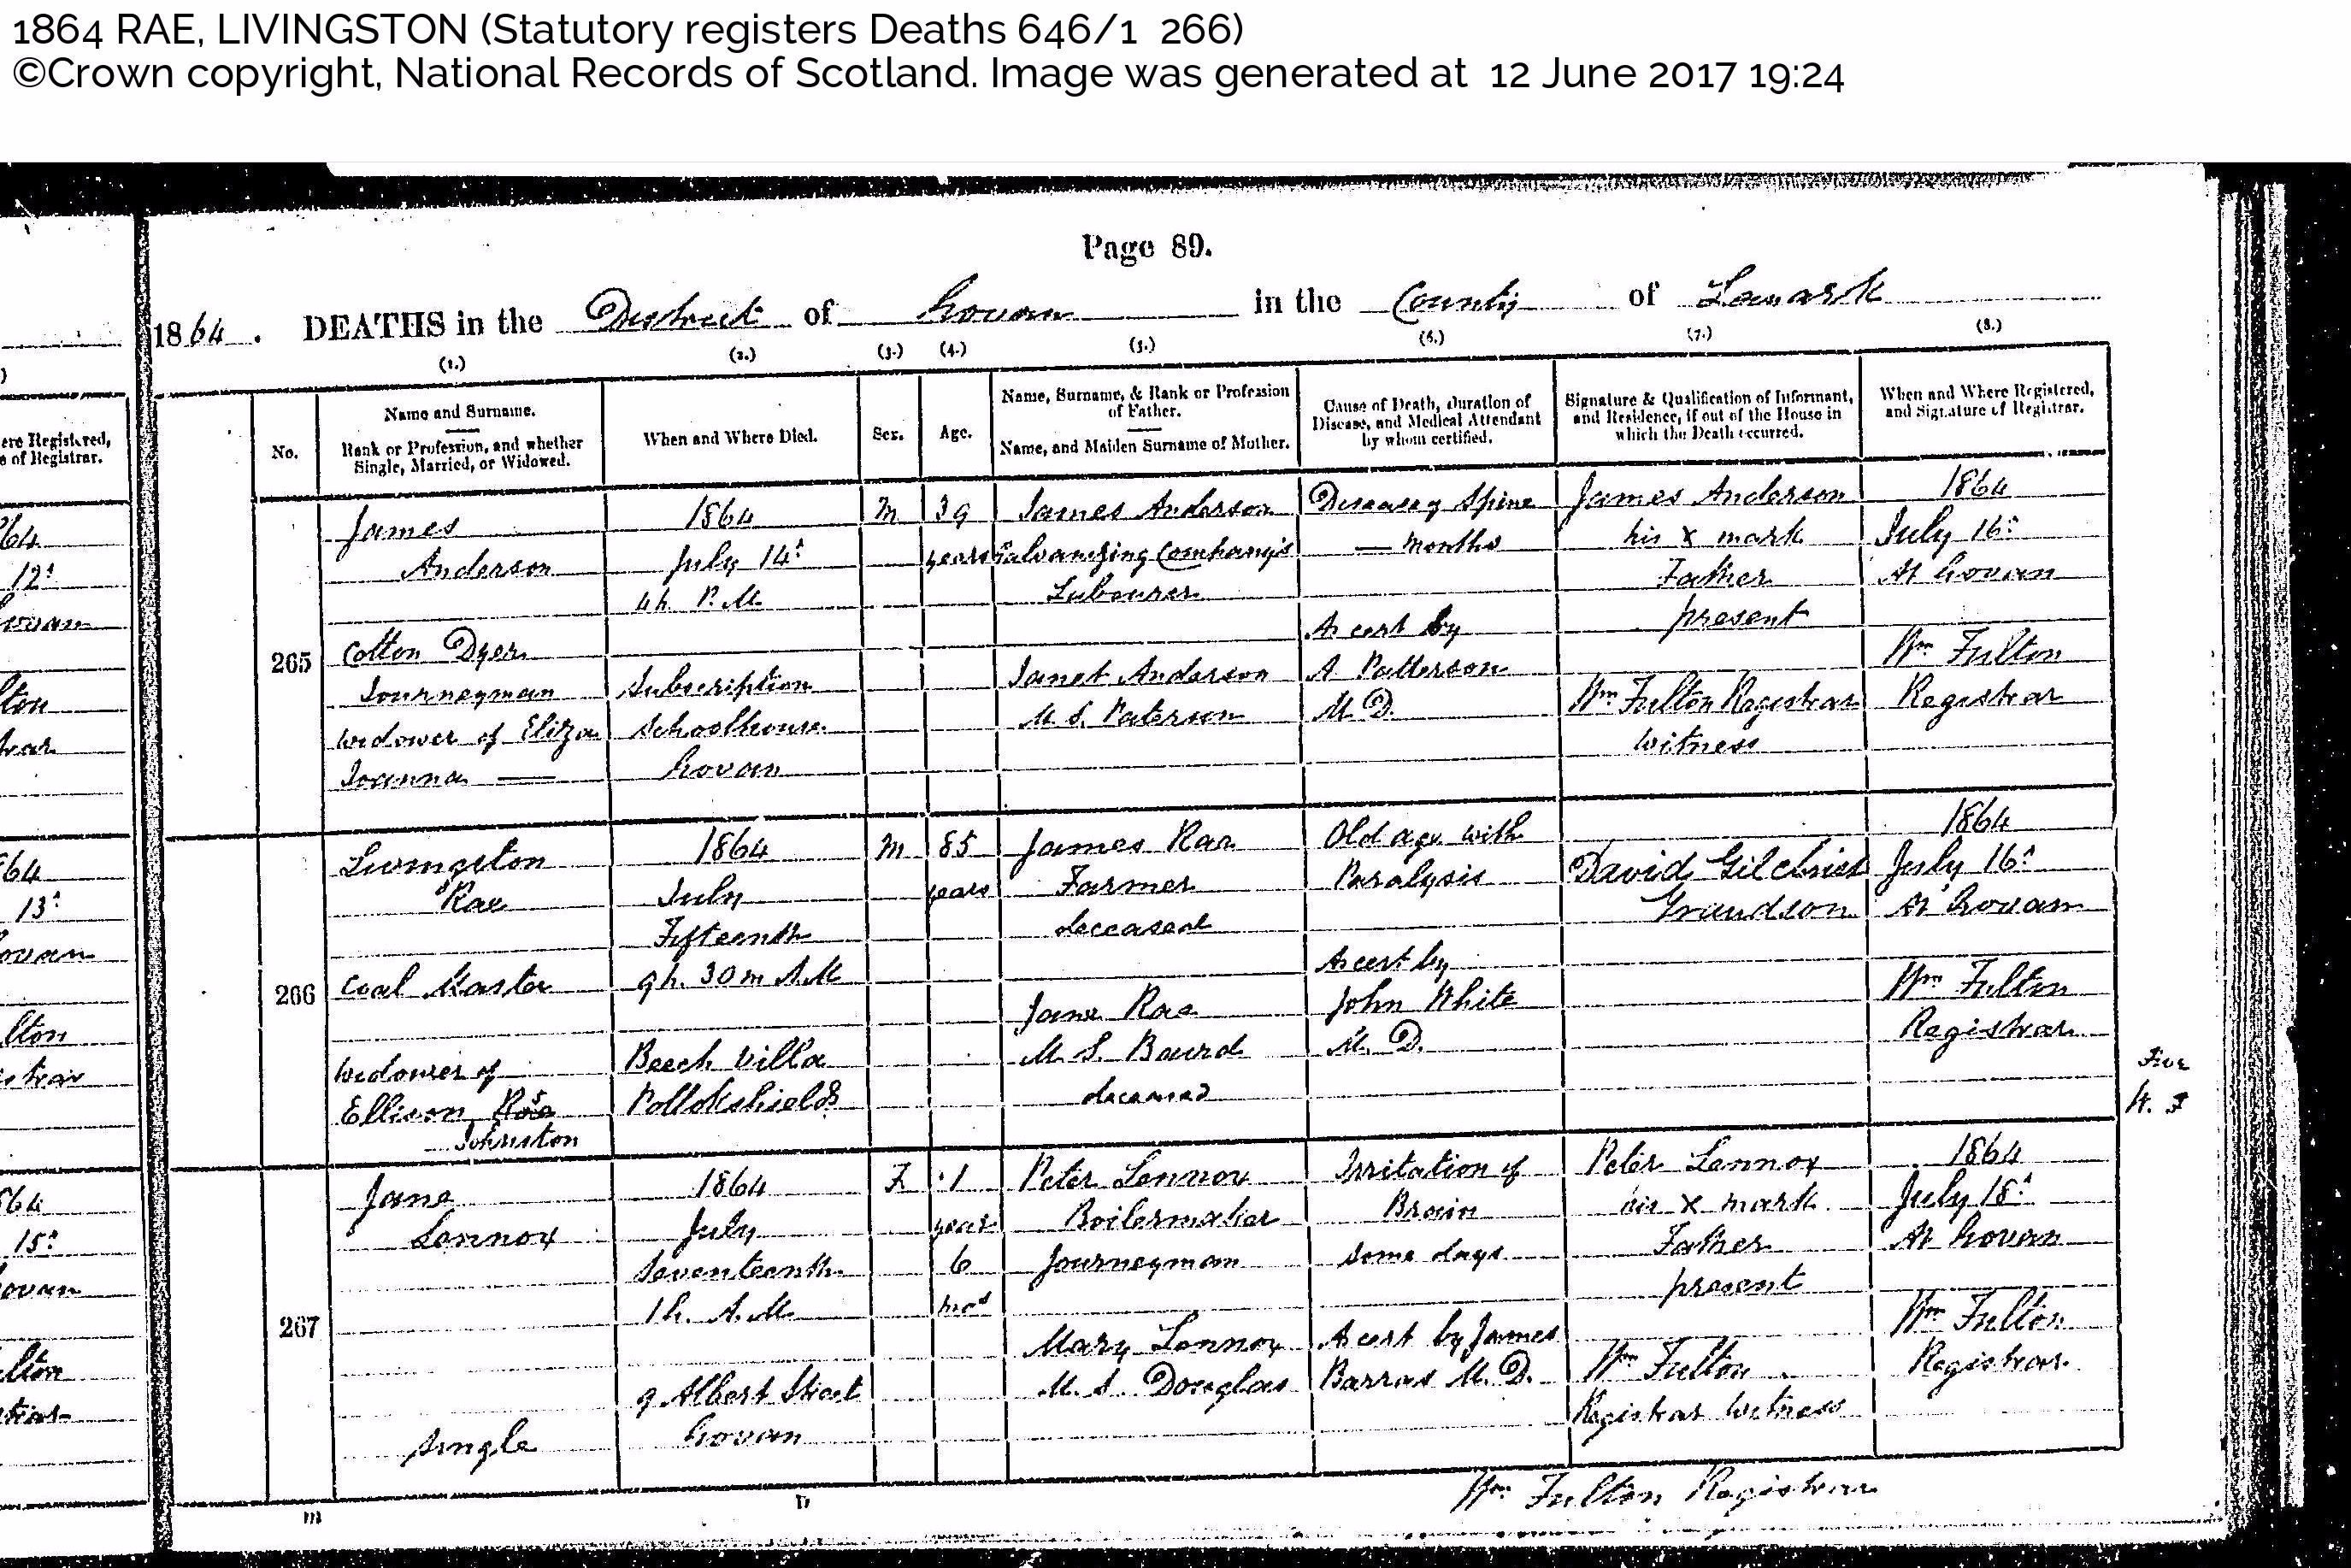 1864 RAE, LIVINGSTON (Statutory registers Deaths 646/1 266)
©Crown copyright, National Records of Scotland. Image was generated at 12 June 2017 19:24
Page 89.
1864. DEATHS in the District of Govan in the County of Lanark
(1.) (2.) (3.) (4.) (5.) (6.) (7.) (8.)
No.
Name and Surname.
Rank or Profession, and whether
Single, Married, or Widowed.
When and Where Died.
Sex.
Age.
Name, Surname, & Rank or Profession
of Father.
Name, and Maiden Surname of Mother.
Cause of Death, Duration of
Disease, and Medical Attendant
by whom certified.
Signature & Qualification of Informant,
and Residence, if out of the House in
which the Death occurred.
When and Where Registered,
and Signature of Registrar.
265
James
Anderson
Cotton Dyer
Journeyman
widower of Eliza
Joanna —
1864
July 14th
4h P.M
Subscription
Schoolhouse
Govan
M
39
years
James Anderson
Galvanizing Company's
Labourer
Janet Anderson
M.S. Paterson
Disease of Spine
— months
As cert by
A Patterson
M.D.
James Anderson
his x mark
Father
present
Wm Fulton Registrar
Witness
1864
July 16th
At Govan
Wm Fulton
Registrar
266
Livingston
Rae
Coal Master
widower of
Ellison Rae
Johnston
1864
July
Fifteenth
9h. 30m A.M
Beech Villa
Pollokshields
M
85
years
James Rae
Farmer
deceased
Jane Rae
M.S. Baird
deceased
Old age with
Paralysis
As cert by
John White
M.D.
David Gilchrist
Grandson
1864
July 16th
At Govan
Wm Fulton
Registrar
Five
W. F
267
Jane
Lennox
Single
1864
July
Seventeenth
1h. A.M
9 Albert Street
Govan
F
1
year
6
mos
Peter Lennox
Boilermaker
Journeyman
Mary Lennox
M.S. Douglas
Irritation of
Brain
some days
As cert by James
Barras M.D.
Peter Lennox
his x mark
Father
present
Wm Fulton
Registrar Witness
1864
July 18th
At Govan
Wm Fulton
Registrar
Wm Fulton Registrar